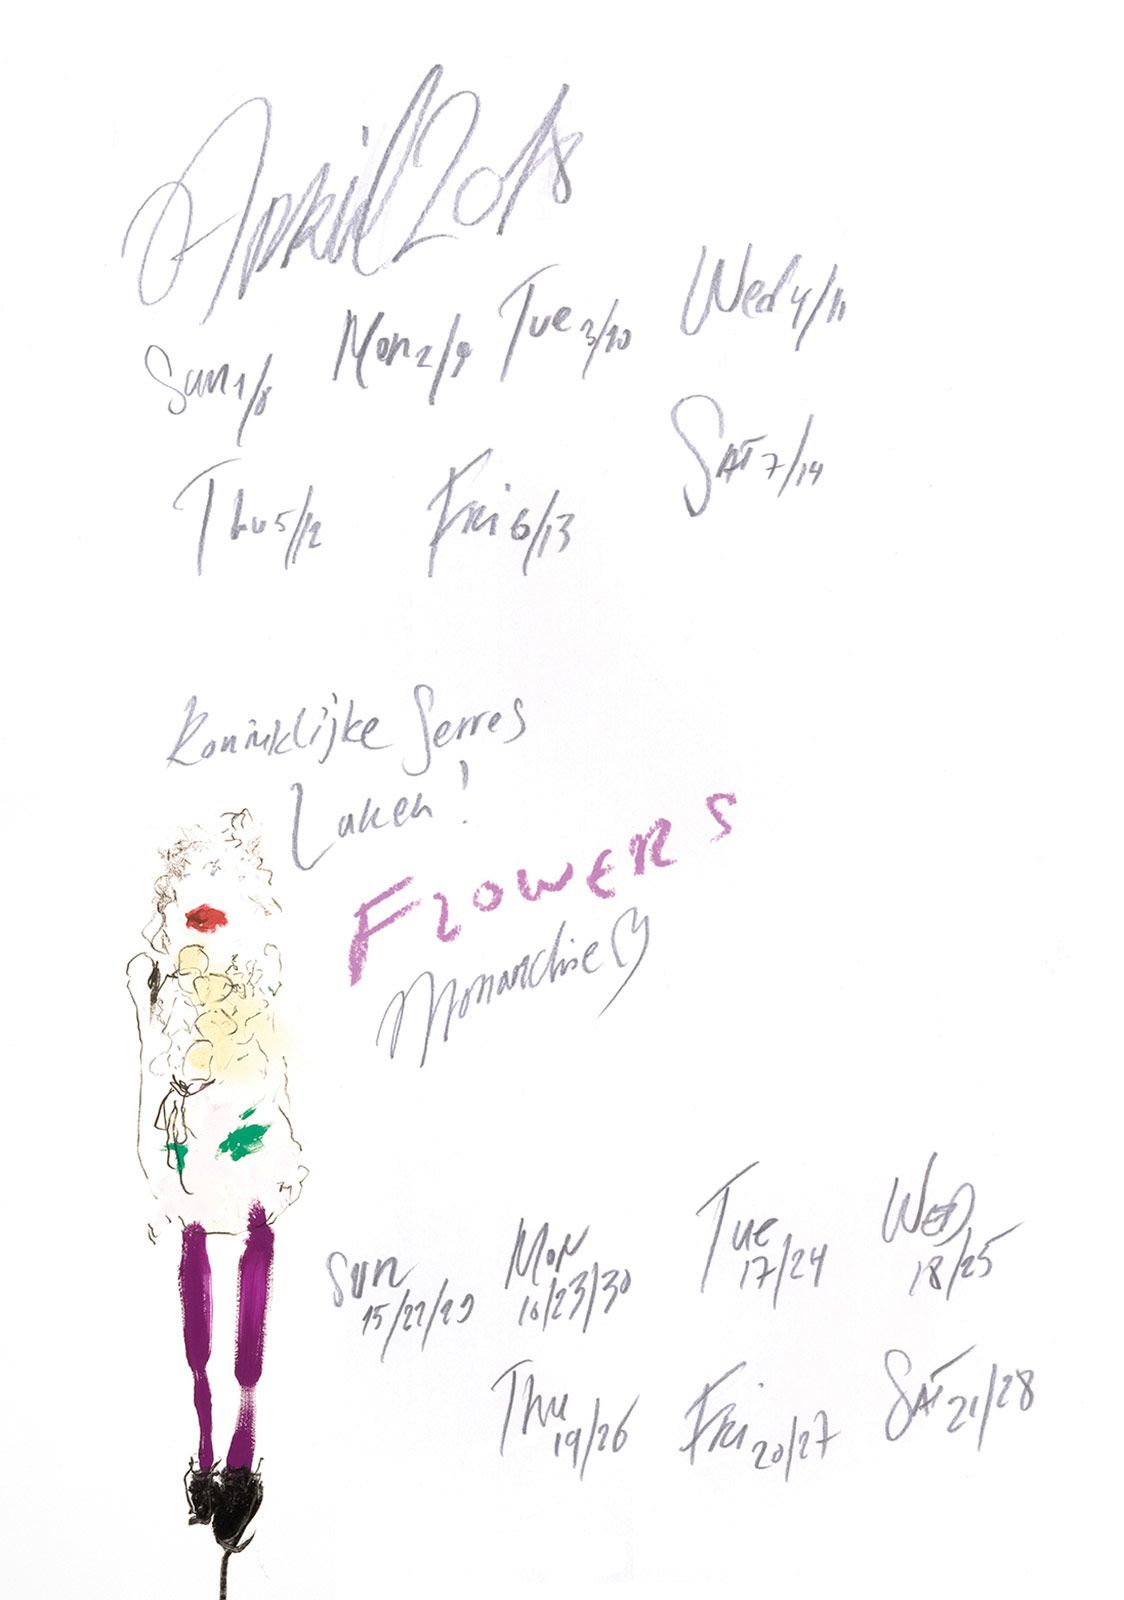 April 2018
Sun 1/8 Mon 2/9 Tue 3/10 Wed 4/11
Thu 5/12 Fri 6/13 Sat 7/14
Koninklijke Serres
Laken!
FLOWERS
Monarchie
Sun 15/22/29 Mon 16/23/30 Tue 17/24 Wed 18/25
Thu 19/26 Fri 20/27 Sat 21/28